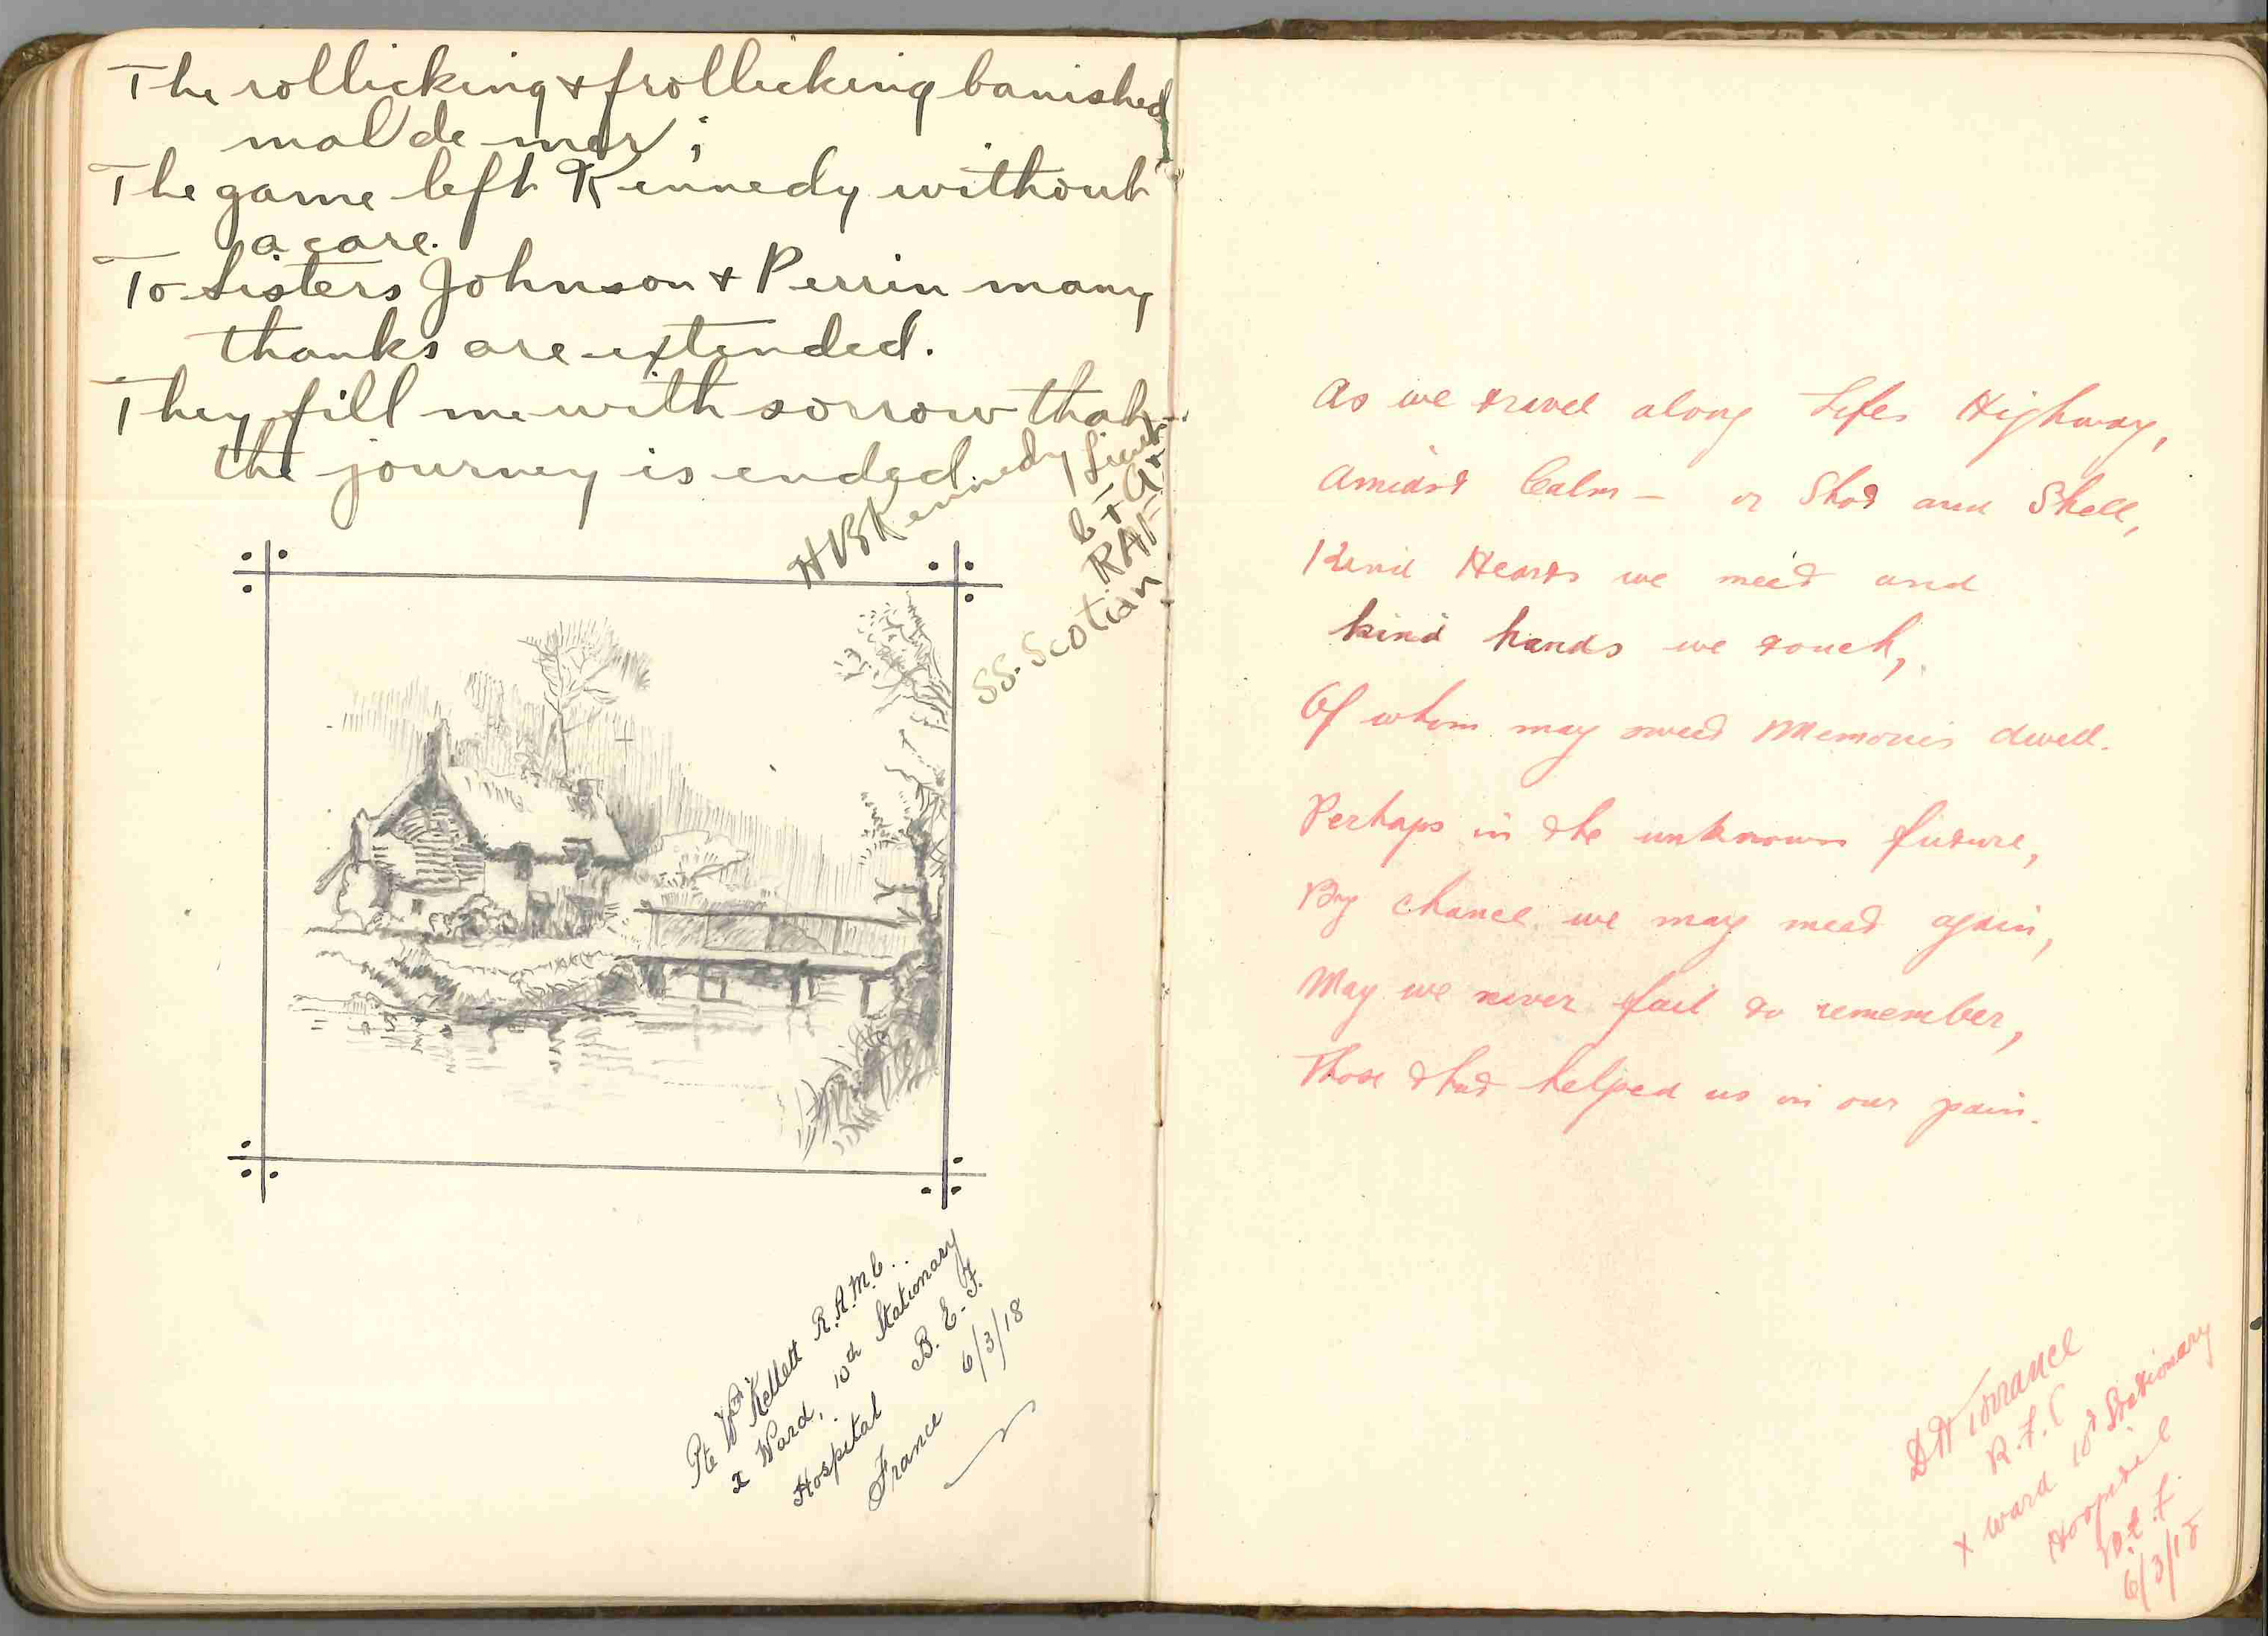 The rollicking & frollicking banished
mal de mer;
The game left Kennedy without
a care.
To Sisters Johnson & Perrin many
thanks are extended.
They fill me with sorrow that
the journey is ended.
HB Kennedy Lieut
RAF
SS. Scotian
Pte W. Kellett R.A.M.C..
X Ward, 10th Stationary
Hospital B.E.F.
France 6/3/18
As we travel along Lifes Highway,
Amidst Calm - or Shot and Shell,
Kind Hearts we meet and
kind hands we touch,
Of whom may sweet Memories dwell.
Perhaps in the unknown future,
By chance we may meet again,
May we never fail to remember,
Those that helped us in our pain.
Torrance
R.F.C
X Ward 10th Stationary
Hospital
B.E.F.
6/3/18